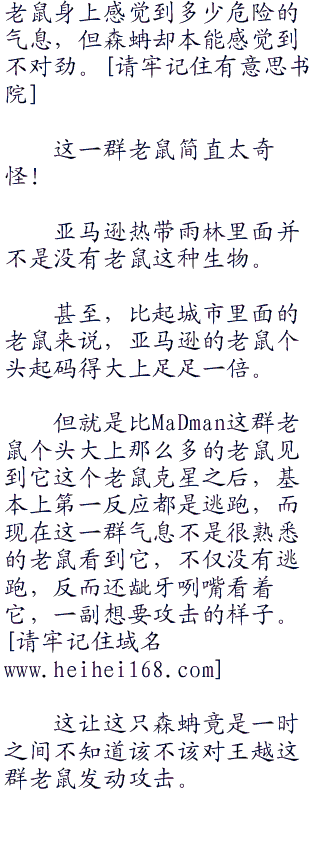 老鼠身上感觉到多少危险的
气息，但森蚺却本能感觉到
不对劲。[请牢记住有意思书
院]
这一群老鼠简直太奇
怪！
亚马逊热带雨林里面并
不是没有老鼠这种生物。
甚至，比起城市里面的
老鼠来说，亚马逊的老鼠个
头起码得大上足足一倍。
但就是比MaDman这群老
鼠个头大上那么多的老鼠见
到它这个老鼠克星之后，基
本上第一反应都是逃跑，而
现在这一群气息不是很熟悉
的老鼠看到它，不仅没有逃
跑，反而还龇牙咧嘴看着
它，一副想要攻击的样子。
[请牢记住域名
www.heihei168.com]
这让这只森蚺竟是一时
之间不知道该不该对王越这
群老鼠发动攻击。